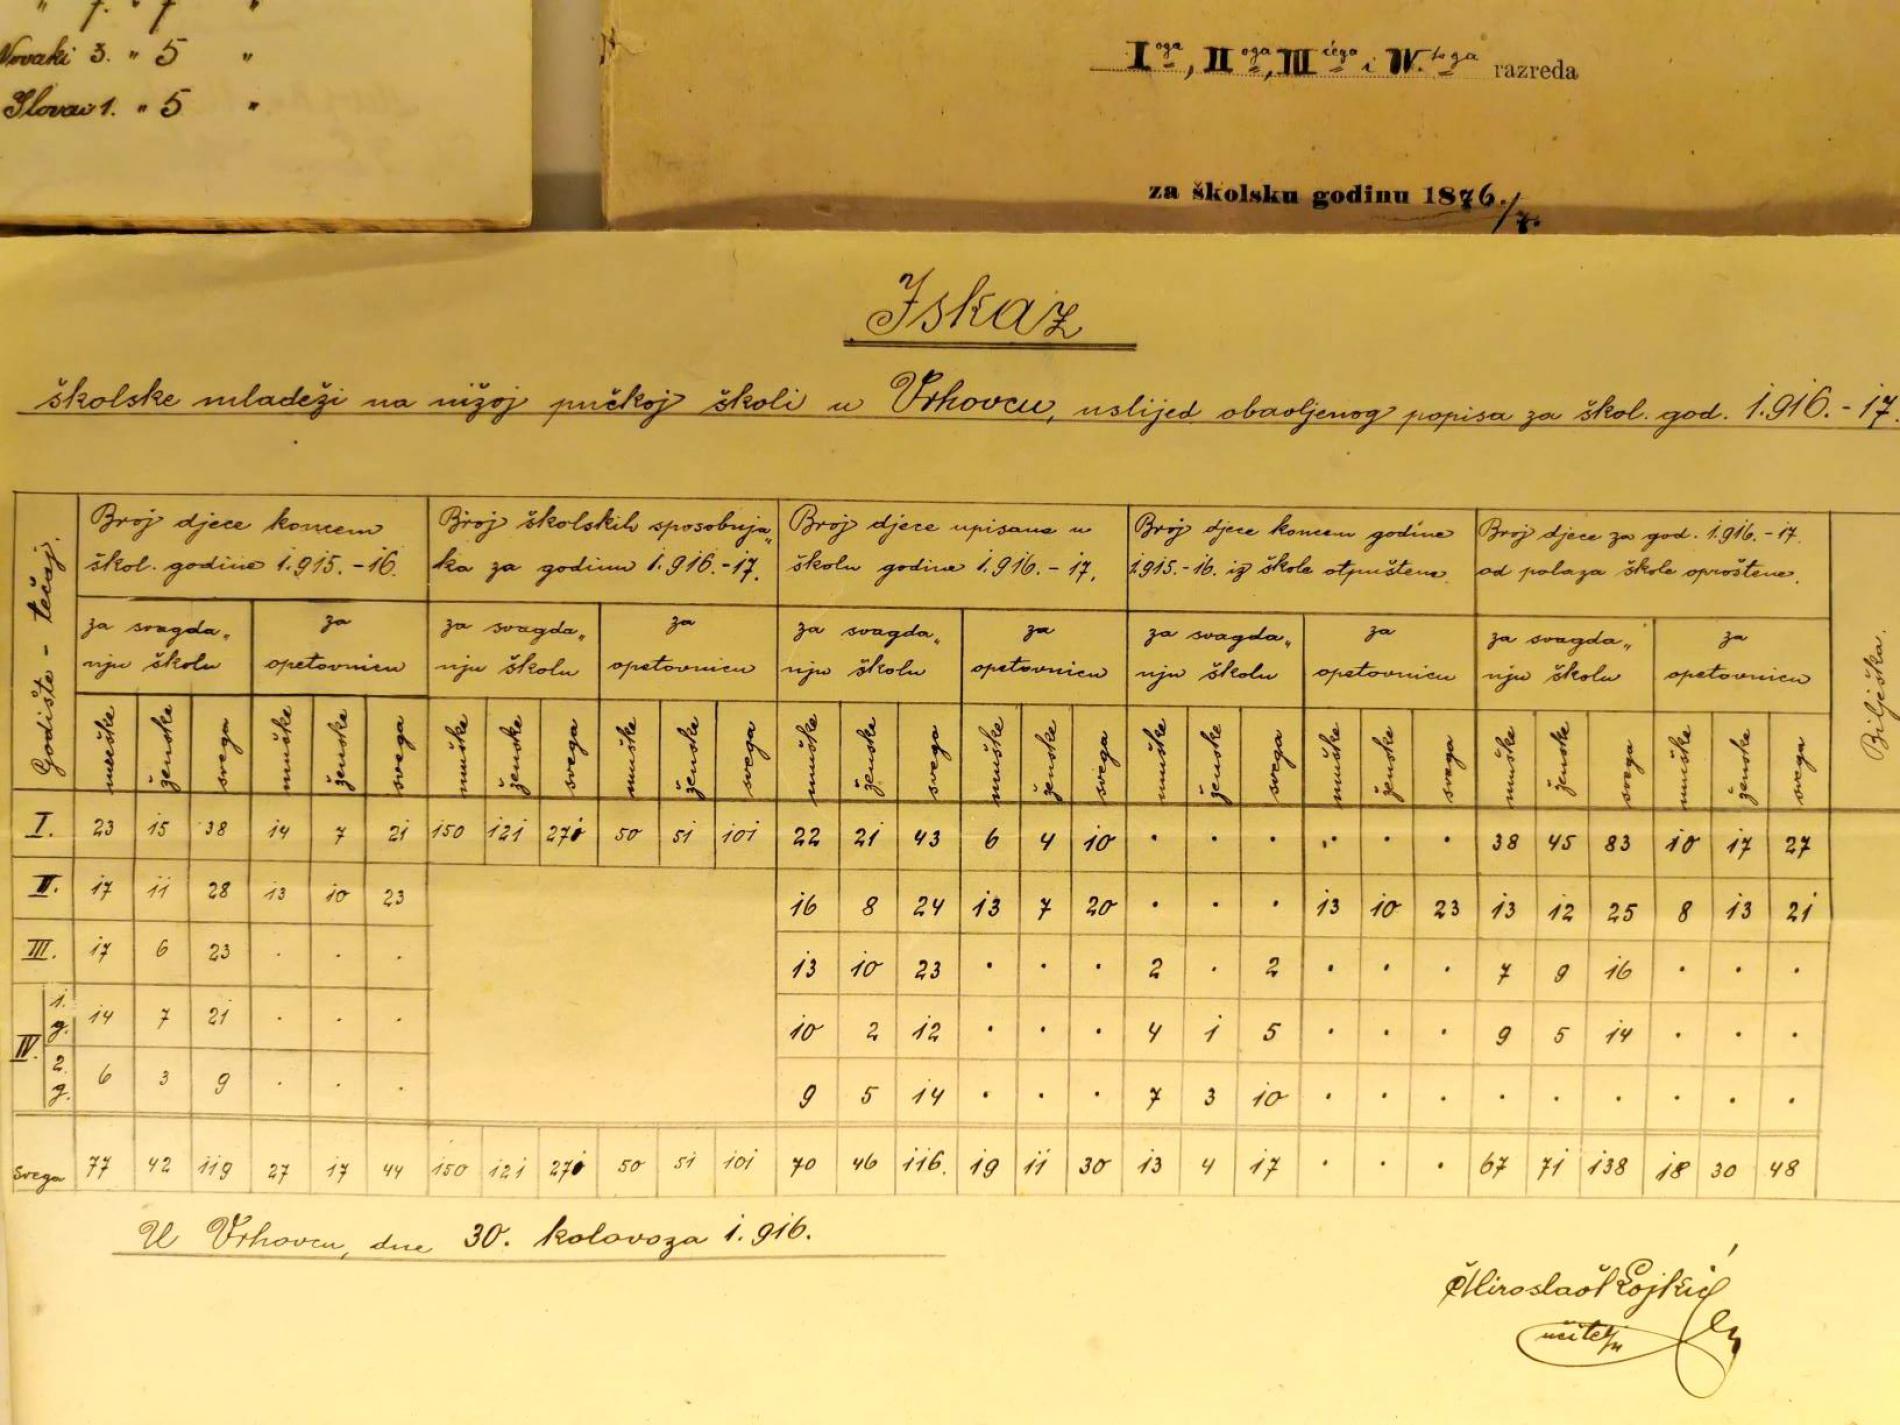 " 7. " 7 "
Novaki 3. " 5 "
Ilovac 1. " 5 "
I oga, II oga, III ćega i IV. toga razreda
za školsku godinu 1876./7.
Iskaz
školske mladeži na nižoj pučkoj školi u Vrhovcu, uslijed obavljenog popisa za škol. god. 1.916. - 17.
Godište - tečaj.
Broj djece koncem
škol. godine 1.915. - 16.
Broj školskih sposobnja„
ka za godinu 1.916. - 17.
Broj djece upisane u
školu godine 1.916. - 17.
Broj djece koncem godine
1.915. - 16. iz škole otpuštene.
Broj djece za god. 1.916. - 17.
od polaza škole oproštene.
Bilješka.
za svagda„ za za svagda„ za za svagda„ za za svagda„ za za svagda„ za
nju školu opetovnicu nju školu opetovnicu nju školu opetovnicu nju školu opetovnicu nju školu opetovnicu
muške ženske svega muške ženske svega muške ženske svega muške ženske svega muške ženske svega muške ženske svega muške ženske svega muške ženske svega muške ženske svega muške ženske svega
I. 23 15 38 14 7 21 150 121 271 50 51 101 22 21 43 6 4 10 . . . . . . 38 45 83 10 17 27
II. 17 11 28 13 10 23 16 8 24 13 7 20 . . . 13 10 23 13 12 25 8 13 21
III. 17 6 23 . . . 13 10 23 . . . 2 . 2 . . . 7 9 16 . . .
IV. 1. g. 14 7 21 . . . 10 2 12 . . . 4 1 5 . . . 9 5 14 . . .
2. g. 6 3 9 . . . 9 5 14 . . . 7 3 10 . . . . . . . . .
svega 77 42 119 27 17 44 150 121 271 50 51 101 70 46 116. 19 11 30 13 4 17 . . . 67 71 138 18 30 48
U Vrhovcu, dne 30. kolovoza 1.916.
Miroslav
učitelj